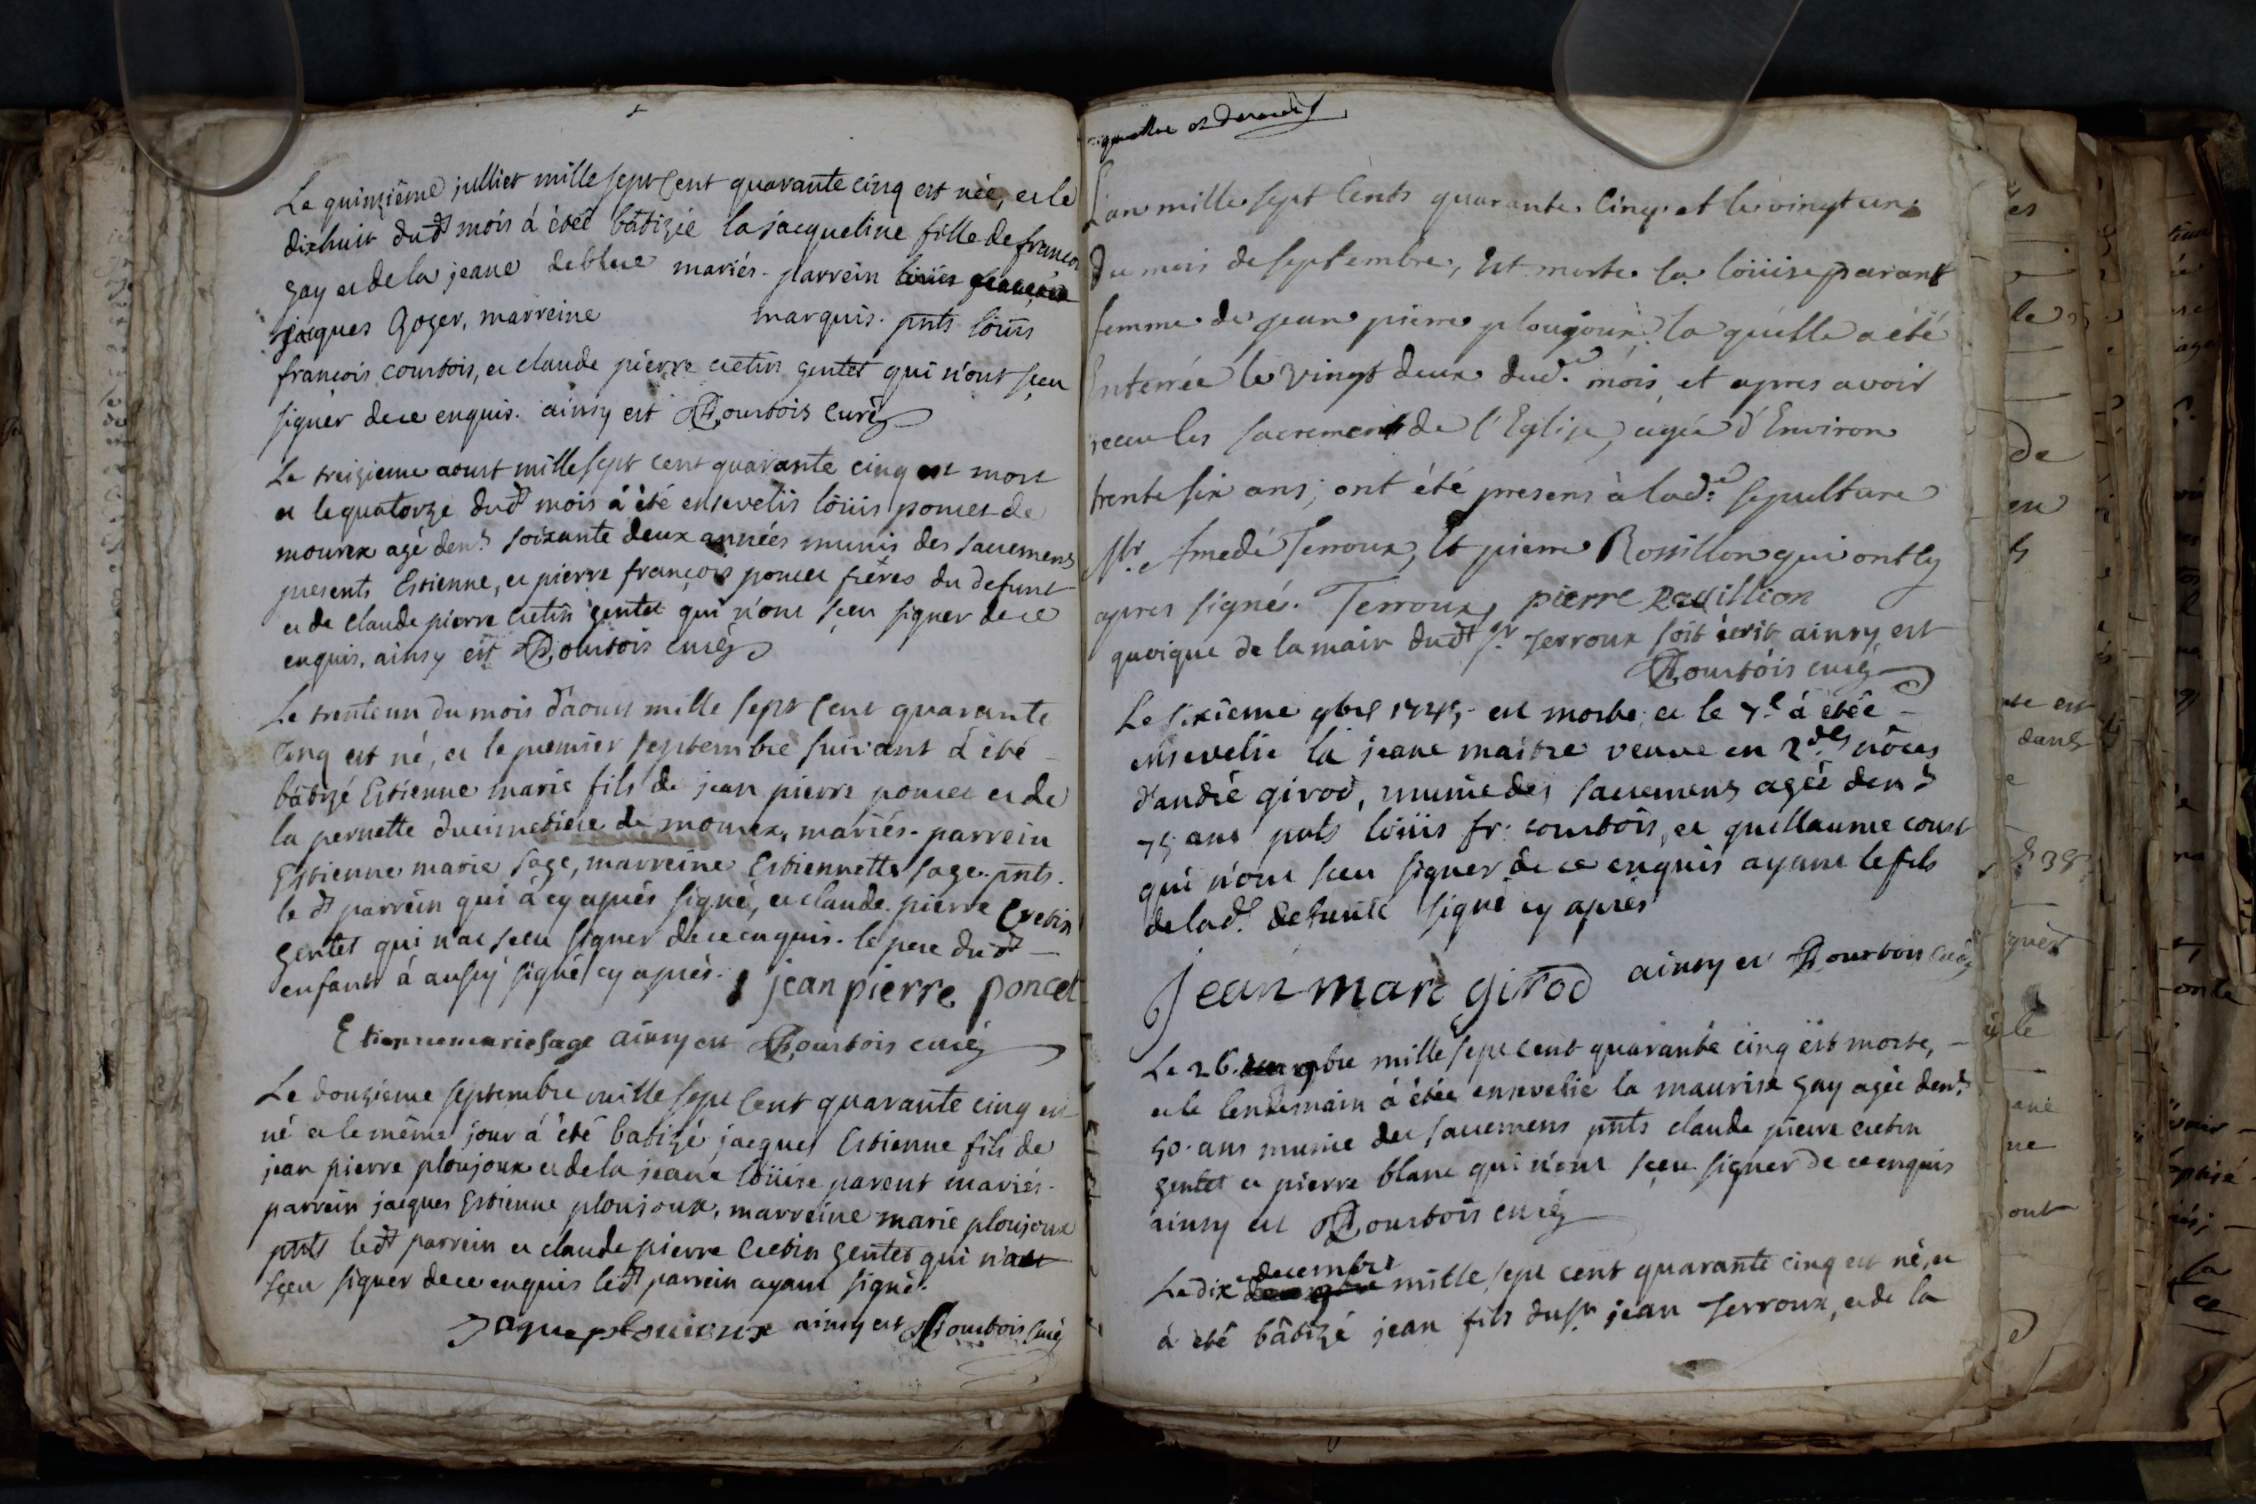 Le quinziême julliet mille sept Cent quarante cinq est née, et le
dixhuit dud.t mois á êtêe bâtizée la jacqueline fille de francois
gay et de la jeane deblue mariés. parrein
jacques Goger, marreine marquis. pnts. loüis
francois courtois, et claude pierre cretin gentet qui n'ont sçeu
signer de ce enquis. ainsy est Courtois curé
Le treizieme aoust mille sept cent quarante cinq est mort
et le quatorze dud.t mois á êté ensevelis loüis poncet de
mourex agé den.s soixante deux années munis des sacremens
presents Estienne, et pierre françois poncet frères du defunt
et de claude pierre Cretin gentet qui n'ont sçeu signer de ce
enquis, ainsy est Courtois curé
Le trenteun du mois d'aoust mille sept Cent quarante
Cinq est né, et le premier septembre suivant á êté
bâtizé Estienne marie fils de jean pierre poncet et de
la pernette ducimetiere de mourex, mariés. parrein
Estienne marie sage, marreine Estiennette sage. pnts.
le d.t parrein qui á cy aprés signé, et claude pierre Cretin
gentet qui n'at sceu signer de ce enquis. le pere dud.t
enfant á aussy signé cy aprés. jean pierre poncet
Etiennemariesage ainsy est Courtois curé
Le douzieme septembre mille sept Cent quarante cinq est
né et le même jour á êté batizé jacques Estienne fils de
jean pierre ploujoux et de la jeane loüise parent mariés.
parrein jacques Estienne ploujoux, marreine marie ploujoux
pnts led.t parrein et claude pierre Cretin gentet qui n'at
sçeu signer de ce enquis led.t parrein ayant signé.
Jaque ploujoux ainsy est Courtois curé
L'an mille sept Cents quarante Cinq et le vingt un
du mois de septembre, Est morte la loüise parant
femme de jean pierre ploujoux la quelle a été
Enterrée le vingt deux dud.e mois, et apres avoir
receu les sacrement de l'Eglise, agée d'Environ
trente six ans; ont été presens à lad.e sepulture
Mr. Amedé Terroux, Et pierre Rossillon qui ont Cy
apres signé. Terroux, pierre
quoique de la main dud.t sr. Terroux soit écrit ainsy est
Courtois curé
Le sixieme 9bre 1745, est morte et le 7.e á êtêe
ensevelie la jeane maitre veuve en 2.des nôces
d'andré girod, munie des sacremens agée den.s
75 ans pnts loüis fr. courtois, et guillaume court
qui n'ont sceu signer de ce enquis ayant le fils
de lad.e defunte signé cy aprés
jean marc girod ainsy est Courtois curé
Le 26. 9bre mille sept cent quarante cinq est morte,
et le lendemain á êtée ensevelie la maurise gay agée den.s
50. ans munie des sacremens pnts claude pierre cretin
gentet et pierre blanc qui n'ont sçeu signer de ce enquis
ainsy est Courtois curé
decembre
Le dix mille sept cent quarante cinq est né, et
á êté bâtizé jean fils du sr. jean Terroux, et de la